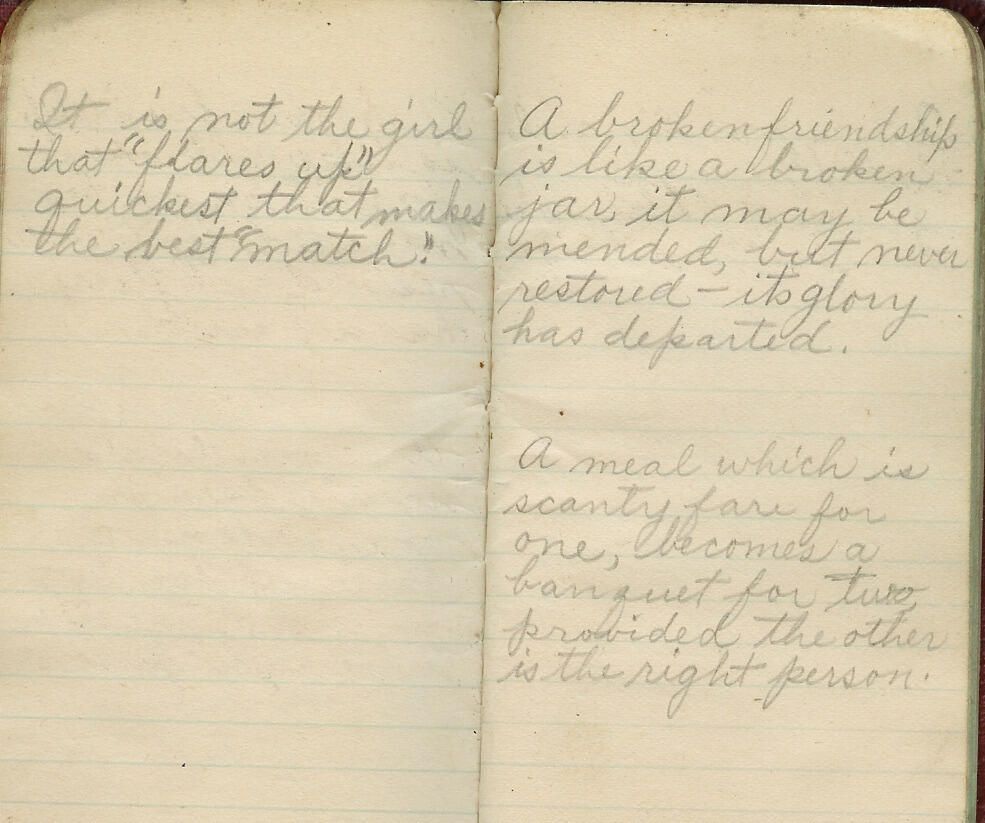 It is not the girl
that "flares up"
quickest that makes
the best "match."
A broken friendship
is like a broken
jar, it may be
mended, but never
restored - its glory
has departed.
A meal which is
scanty fare for
one, becomes a
banquet for two,
provided the other
is the right person.